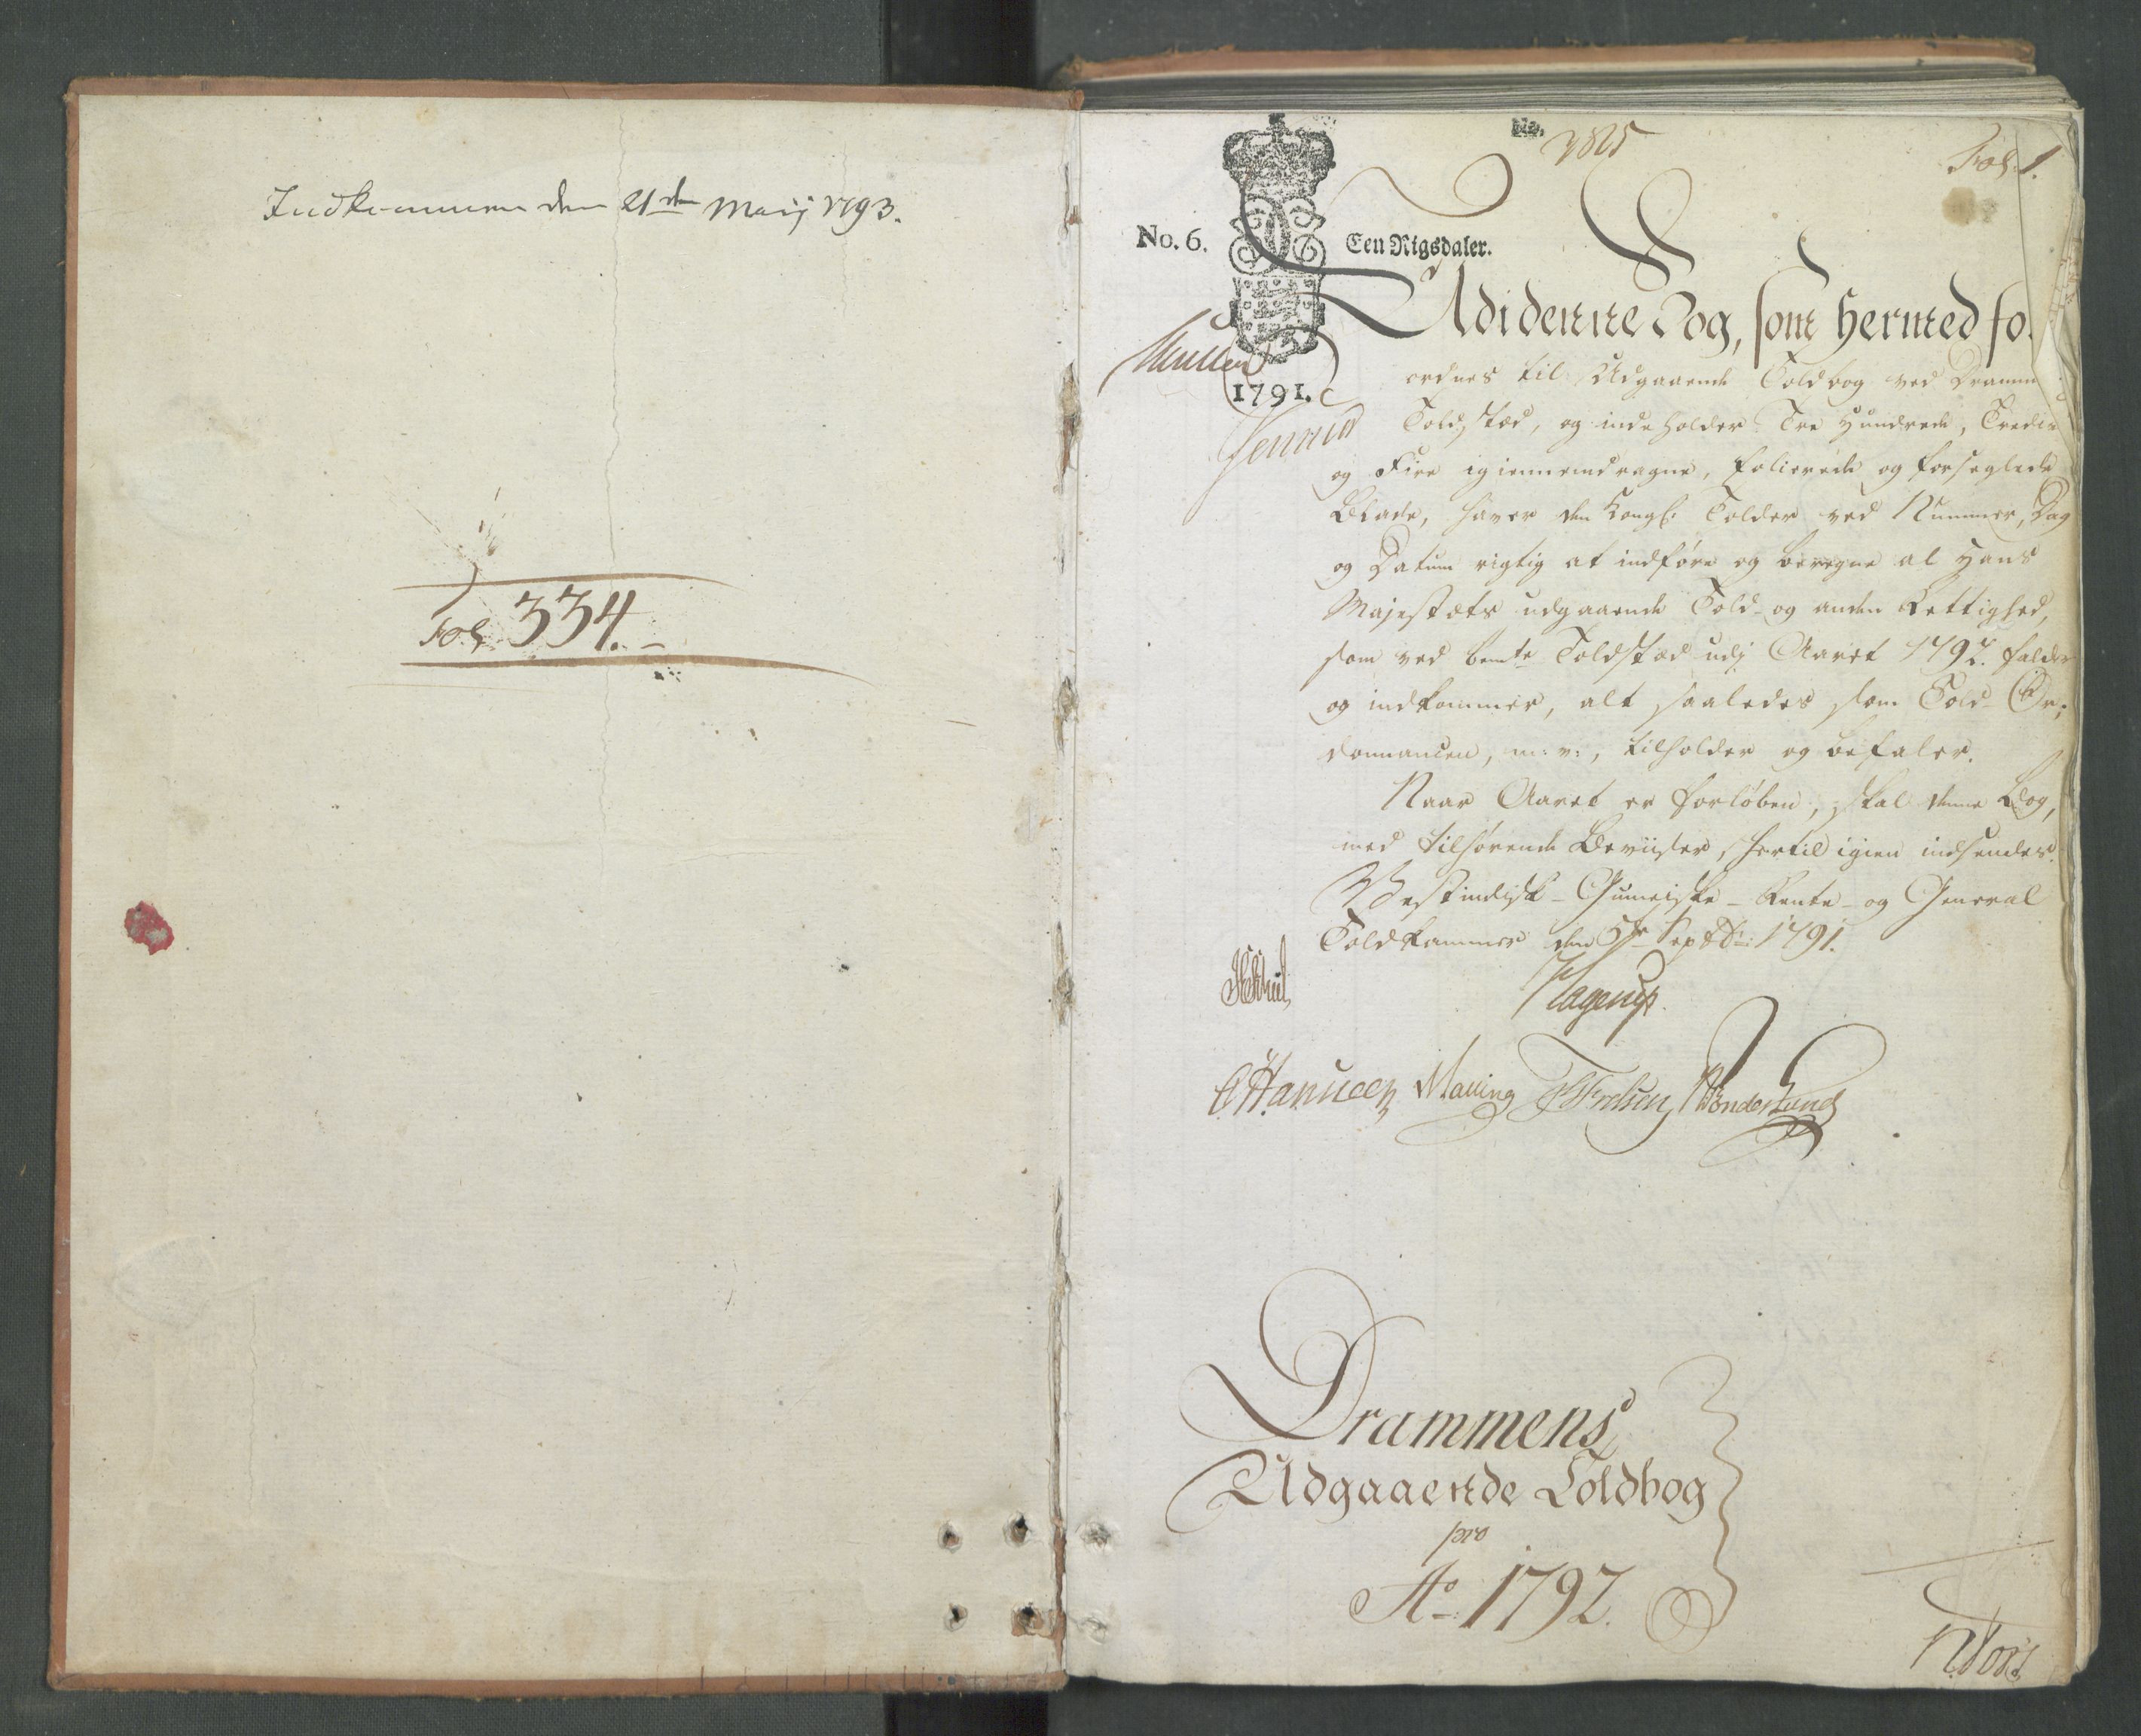 Indkommen den 21de Maij 1793.
Fol. 334.
Fol: 1.
No. 6.
Een Rigsdaler.
1791.
Udi denne Bog, som hermed for
ordnes til Udgaaende Toldbog ved Dramm
Toldstæd, og indeholder Tre Hundrede, Tredive
og Fire igiennemdragne, folierede og forseglede
Blade, haver den Kongl. Tolder ved Nummer, Dag
og Datum rigtig at indføre og beregne al Hans
Majestæts udgaaende Told- og anden Rettighed,
som ved bemte Toldstæd udj Aaret 1792. falder
og indkommer, alt saaledes som Told-Or-
donnancen, m: v:, tilholder og befaler.
Naar Aaret er forløben, skal denne Bog,
med tilhørende Beviiser, hertil igien indsendes.
Vestindisk-Guineiske-Rente- og General
Toldkammer den 5te Septbr: 1791.
Hagerup.
Malling
Drammens
Udgaaende Toldbog
pro
Ao 1792.